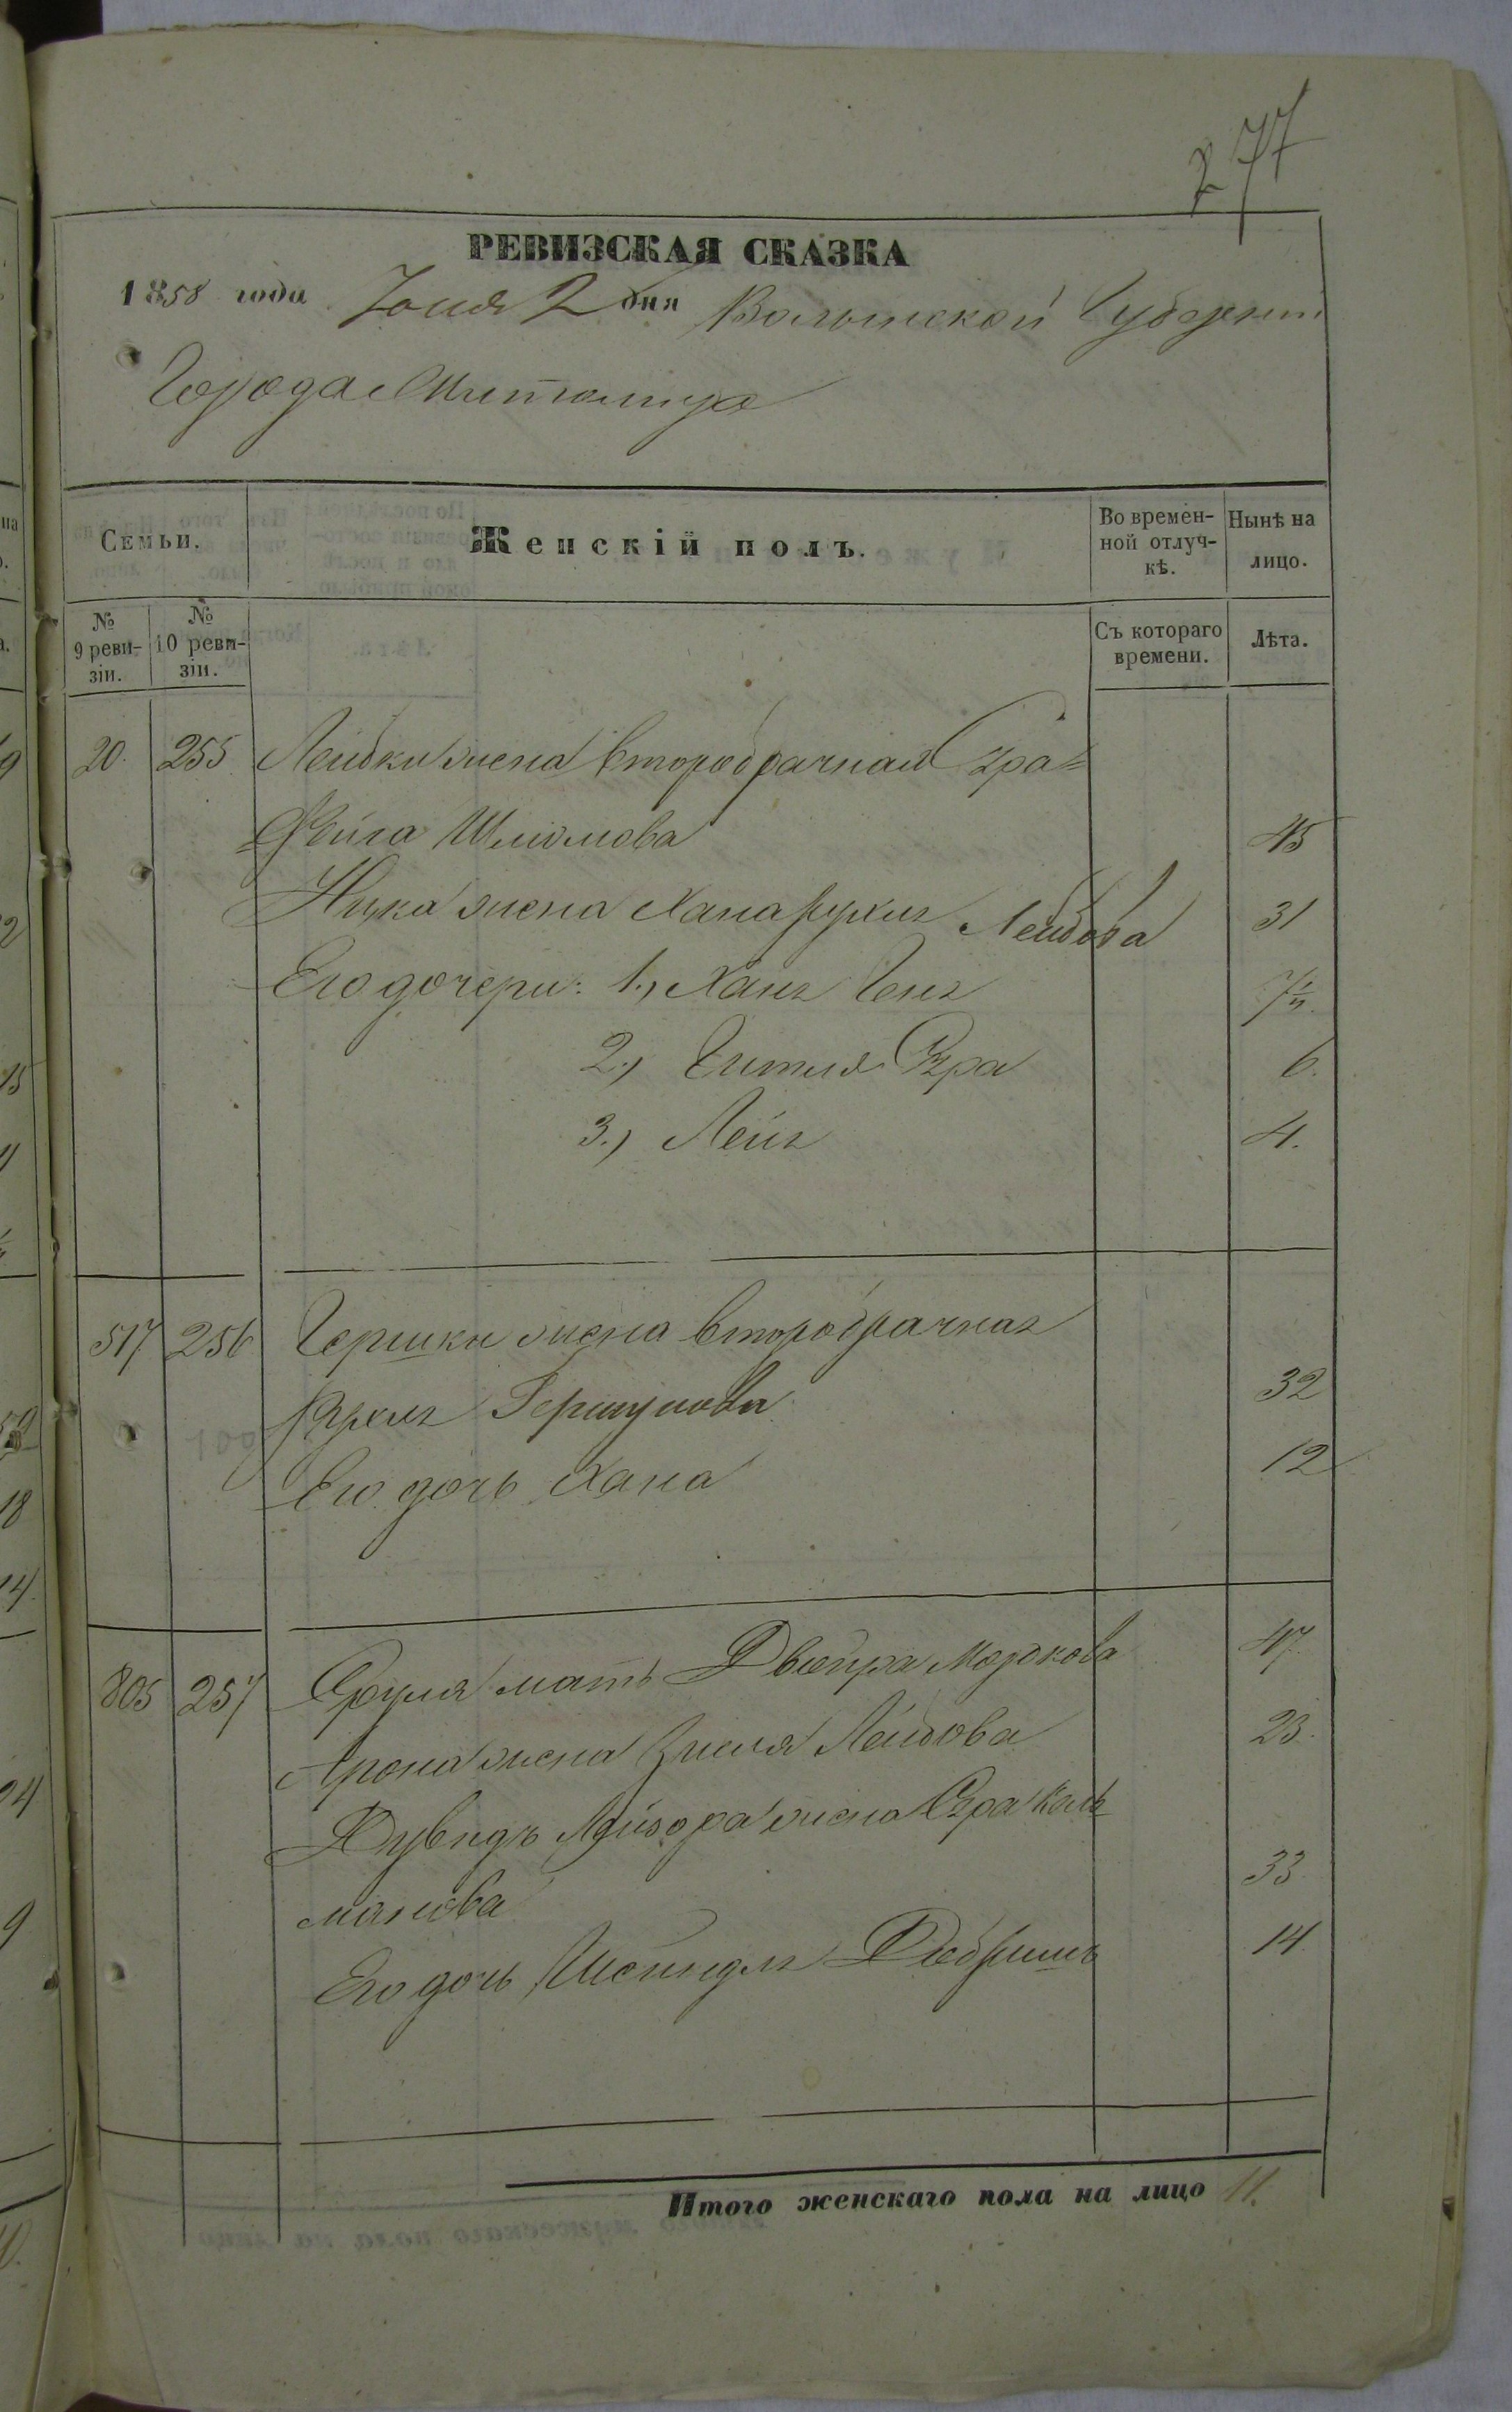 277
РЕВИЗСКАЯ СКАЗКА
1858 года Іюня 2 дня Волынской Губерніи
Города Житомира
Семьи.
Женскій полъ.
Во времен-
ной отлуч-
кѣ.
Нынѣ на
лицо.
№
9 реви-
зіи.
№
10 реви-
зіи.
Съ котораго
времени.
Лѣта.
20. 255 Лейбки жена второбрачная Сура=
Фейга Шліомова 45
жена Хана Рухля Лейбова 31
Его дочери: 1.) Хая 7½
2.) Гитля Сура 6.
3.) Лея 4.
517 256 Гершки жена второбрачная
Рухля Гершунова 32
Его дочь Хана 12
805 257 Сруля мать Двойра Моркова 47
Арона жена Зисля Лейбова 23.
Дувидъ жена Сура Каль
манова 33
Его дочь Шейндля 14.
Итого женскаго пола на лицо 11.